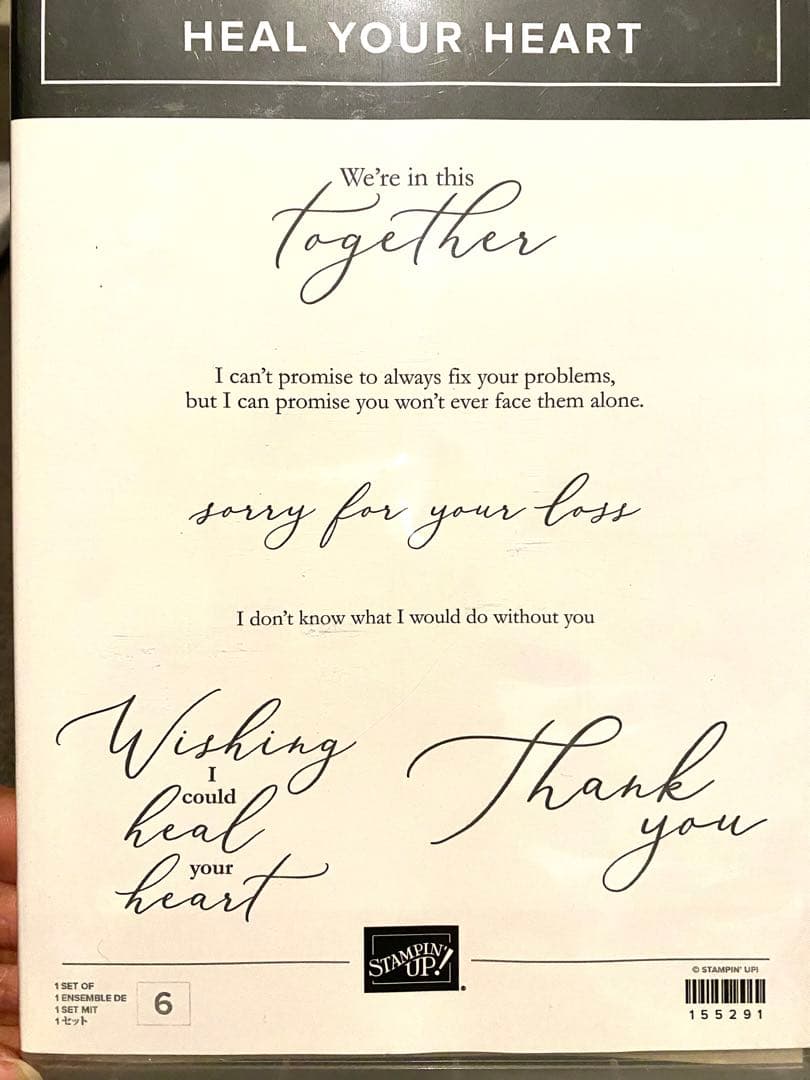 HEAL YOUR HEART
We're in this
together
I can't promise to always fix your problems,
but I can promise you won't ever face them alone.
sorry for your loss
I don't know what I would do without you
Wishing
I
could
heal
your
heart
Thank
you
STAMPIN'
UP!
1 SET OF
1 ENSEMBLE DE
1 SET MIT
1セット
6
© STAMPIN' UP!
155291